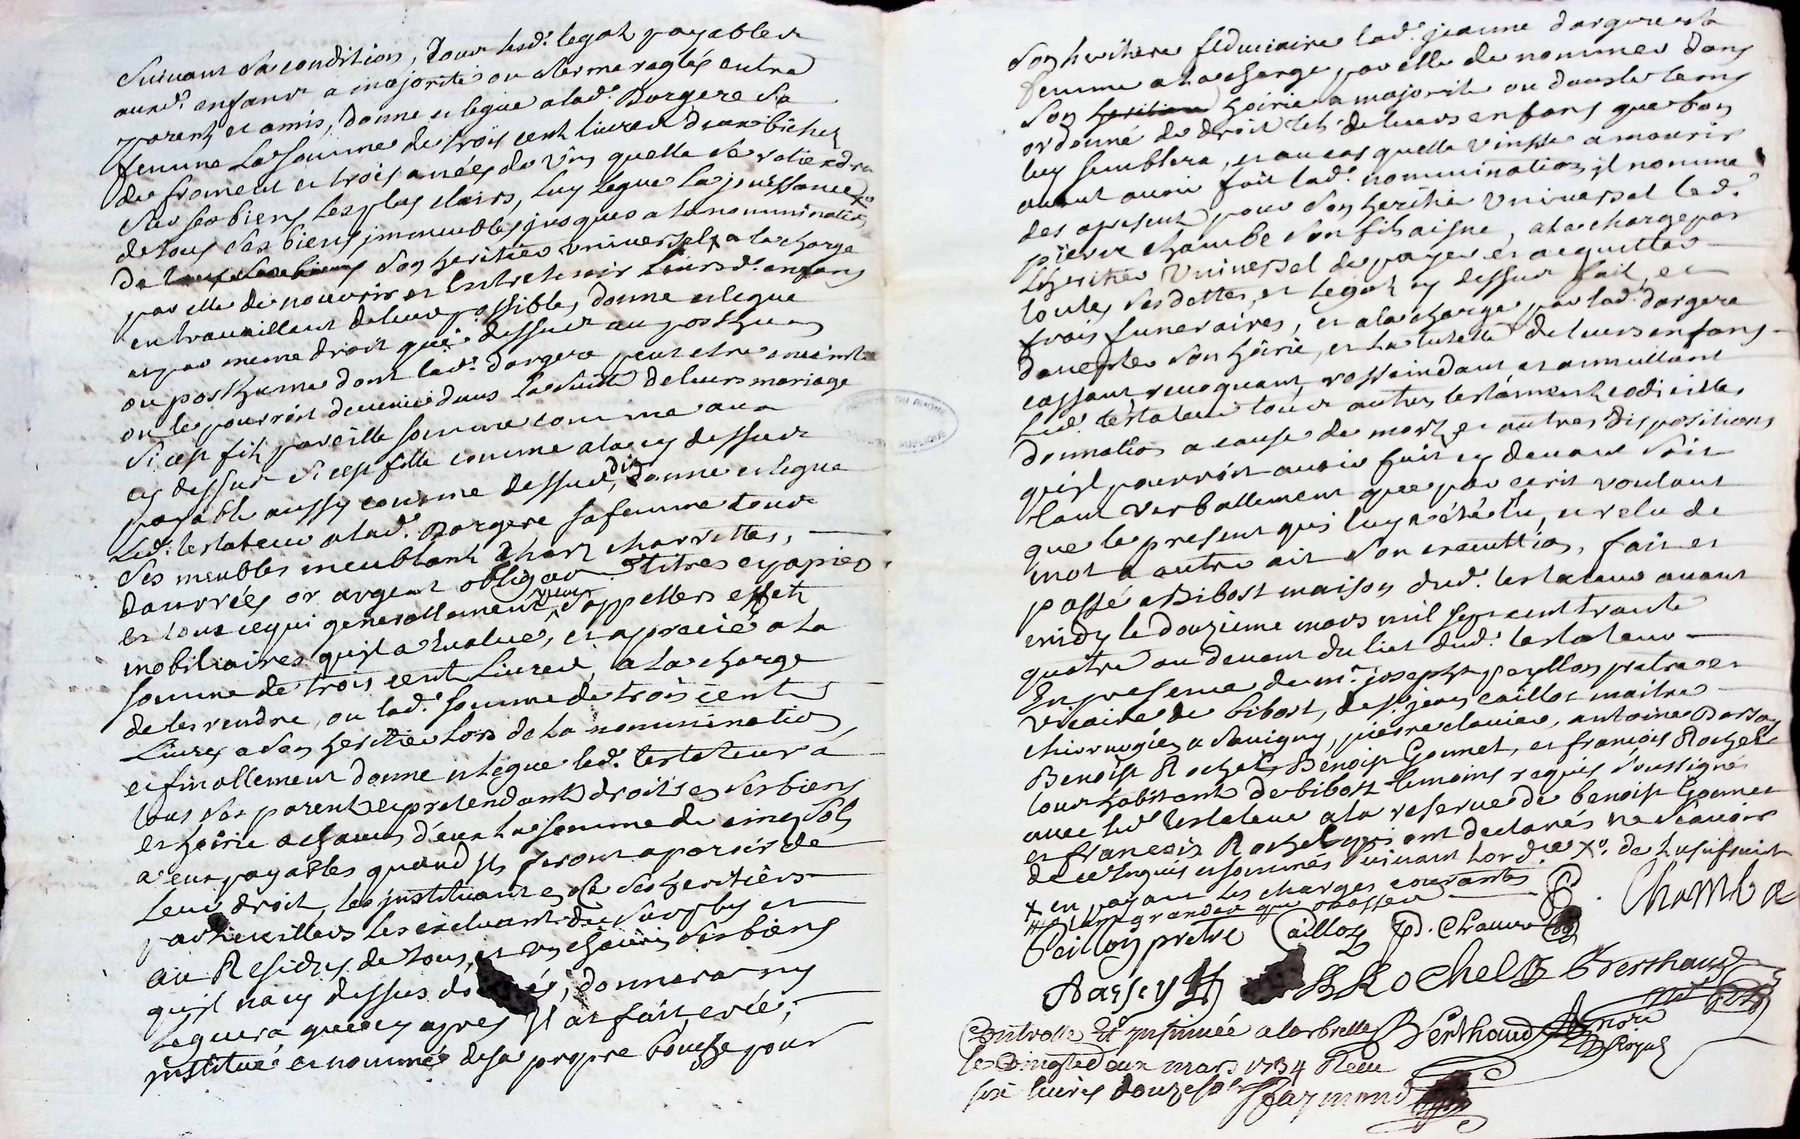 Suivant sa condition, tous lesd. legat payables
auxd. enfans a majorité ou terme reglés entre
parents et amis, donne et legue a lad. Dargere sa
femme la somme de trois cent livres deux bichets
de froment et trois anées de vin quelle se retiendra
sur ses biens les plus clairs, luy legue la jouissance
de tous ses biens immeubles jusques a la nommination
De son heritier universel a la charge
par elle de nourrir et entretenir leursd. enfans
en travaillant de leur possible, donne et legue
et par meme droit que dessus au posthume
ou posthume dont lad. dargere peut etre enceinte
ou le pourroit devenir dans la suitte de leurs mariage
si cest fils pareille somme comme aux
cy dessus si cest fille comme a la cy dessus
payable aussy comme dessus, donne et legue
Led. testateur a lad. Dargere sa femme tous
ses meubles meublant chars charrettes,
danrrées or argent obligaõns titres papiers
et tout ce qui generallement s'appelles effets
mobiliaires quil a evalué, et aprecié a la
somme de trois cent livres, a la charge
de les rendre, ou lad. somme de trois cent
Livres a son heritier lors de la nommination
et finallement donne et legue led. testateur a
tous ses parents et pretendants droits en ses biens
et hoirie a chacun d'eux la somme de cinq sols
a eux payables quand ils feront aparoir de
leur droit, les instituant en ce ses heritiers
particuliers les excluant du surplus et
au Residus de tous, et un chacuns ses biens
quil na cy dessus donné, donnera ny
leguera que cy apres il at fait, crée,
institué et nommé de sa propre bouche pour
son heritiere fiduciaire lad. jeanne dargere sa
femme a la charge par elle de nommer dans
son hoirie a majorité ou dans le tems
ordonné de droit tel de leurs enfans que bon
luy semblera, et au cas quelle vinsse a mourir
avant avoir fait lad. nommination il nomme
des apresent pour son heritier universel led.
pierre chambe son fils aisne, a la charge par
lheritier universel de payer et acquitter
toutes ses dettes, et legat cy dessus fait et
frais funeraires, et a la charge par lad. dargere
son hoirie, et la tutelle de leurs enfans
cassant revoquant et annullant
Led. testateur tous autres testament codicille
donnation a cause de mort et autres dispositions
quil pourroit avoir fait cy devant soit
tant verballement que par ecrit voulant
que le present qui luy a été lu, et relu de
mot a autre ait son execution, fait et
passé a Bibost maison dud. testateur avant
midy le douzieme mars mil sept cent trante
quatre au devant du lit dud. testateur
En presence de mr. joseph peyllon pretre et
vicaire de bibost, de sr. jean caillot maitre
chirurgien a Savigny, pierre clavier, antoine Dassay
Benoist Rochel, Benoist Gonnet, et francois Rochel
tous habitant de bibost temoins requis soussignés
avec led. testateur a la reserve de benoist Gonnet
et francois Rochel qui ont declarés ne scavoir
de ce Enquis et sommés suivant lordre X. de lusufruit
X en payant les charges courantes
Peillon pretre Caillot Chambe
Dassay Rochel Berthaud
Controllé Et insinué a larbrelle
le vingt deux mars 1734 Reçu
six livres douze sols Berthaud
Raymond